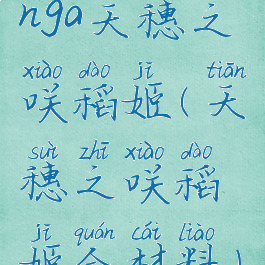 nga天穗之
xiào dào jī tiān
咲稻姬(天
suì zhī xiào dào
穗之咲稻
jī quán cái liào
姬全材料)